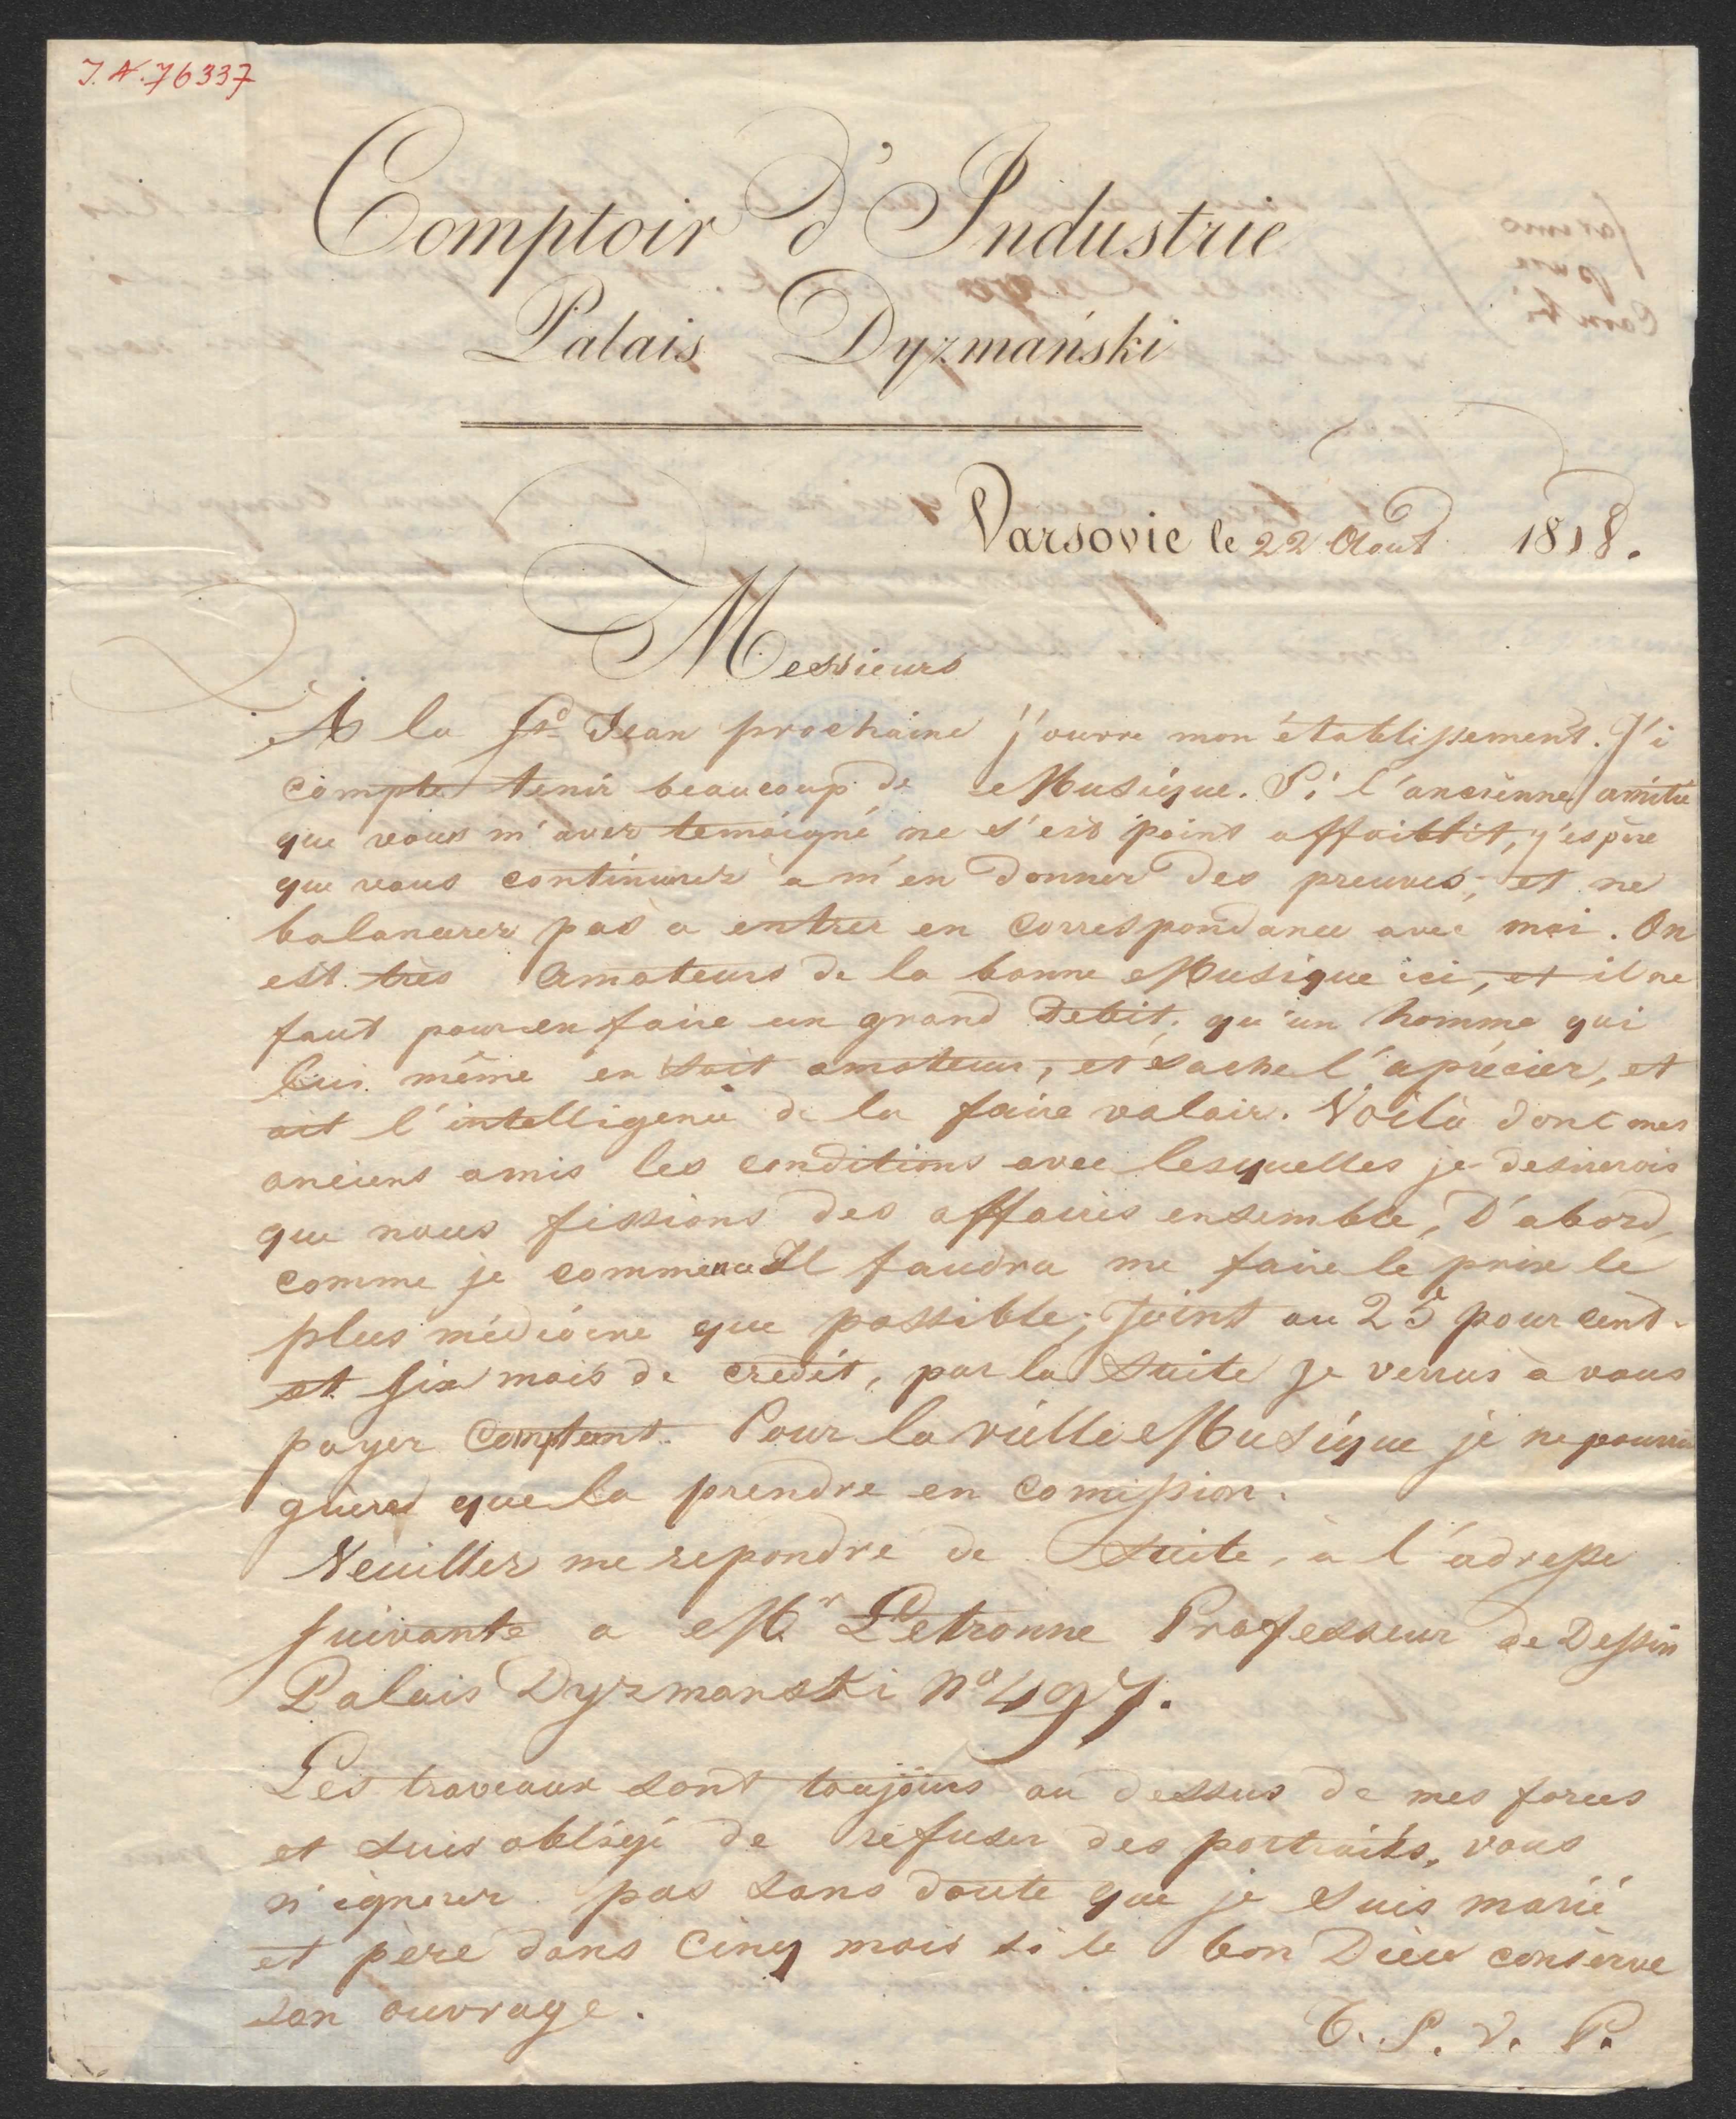 J. N. 76337
Comptoir d'Industrie
Palais Dyzmański
Varsovie le 22 Aout 1818.
Messieurs
A la St. Jean prochaine j'ouvre mon établissement. J'i
compte tenir beaucoup de Musique. Si l'ancienne amitié
que vous m'avez temoigné ne s'est point affaiblit, j'espère
que vous continurez à m'en donner des preuves; et ne
balancerez pas a entrer en correspondance avec moi. On
est très Amateurs de la bonne Musique ici, et il ne
faut pour en faire un grand Debit, qu'un homme qui
lui même en soit amateur, et sache l'aprécier, et
ait l'intelligence de la faire valoir. Voilà donc mes
anciens amis les conditions avec lesquelles je desirerois
que nous fissions des affaires ensemble, D'abord,
comme je commence Il faudra me faire le prix le
plus médiocre que possible; Joint au 25 pour cent.
et six mois de credit, par la suite je verrus à vous
payer comptant. Pour la vieille Musique je ne pourrai
guères que la prendre en comission.
Veuillez me repondre de Suite, à l'adresse
suivante a Mr Letronne Professeur de Dessin
Palais Dyzmanski No 497.
Les traveaux sont toujours au dessus de mes forces
et suis obligé de réfuser des portraits, vous
n'ignorez pas sans doute que je suis marié
et père dans cinq mois si le bon Dieu conserve
son ouvrage.
T. S. V. P.